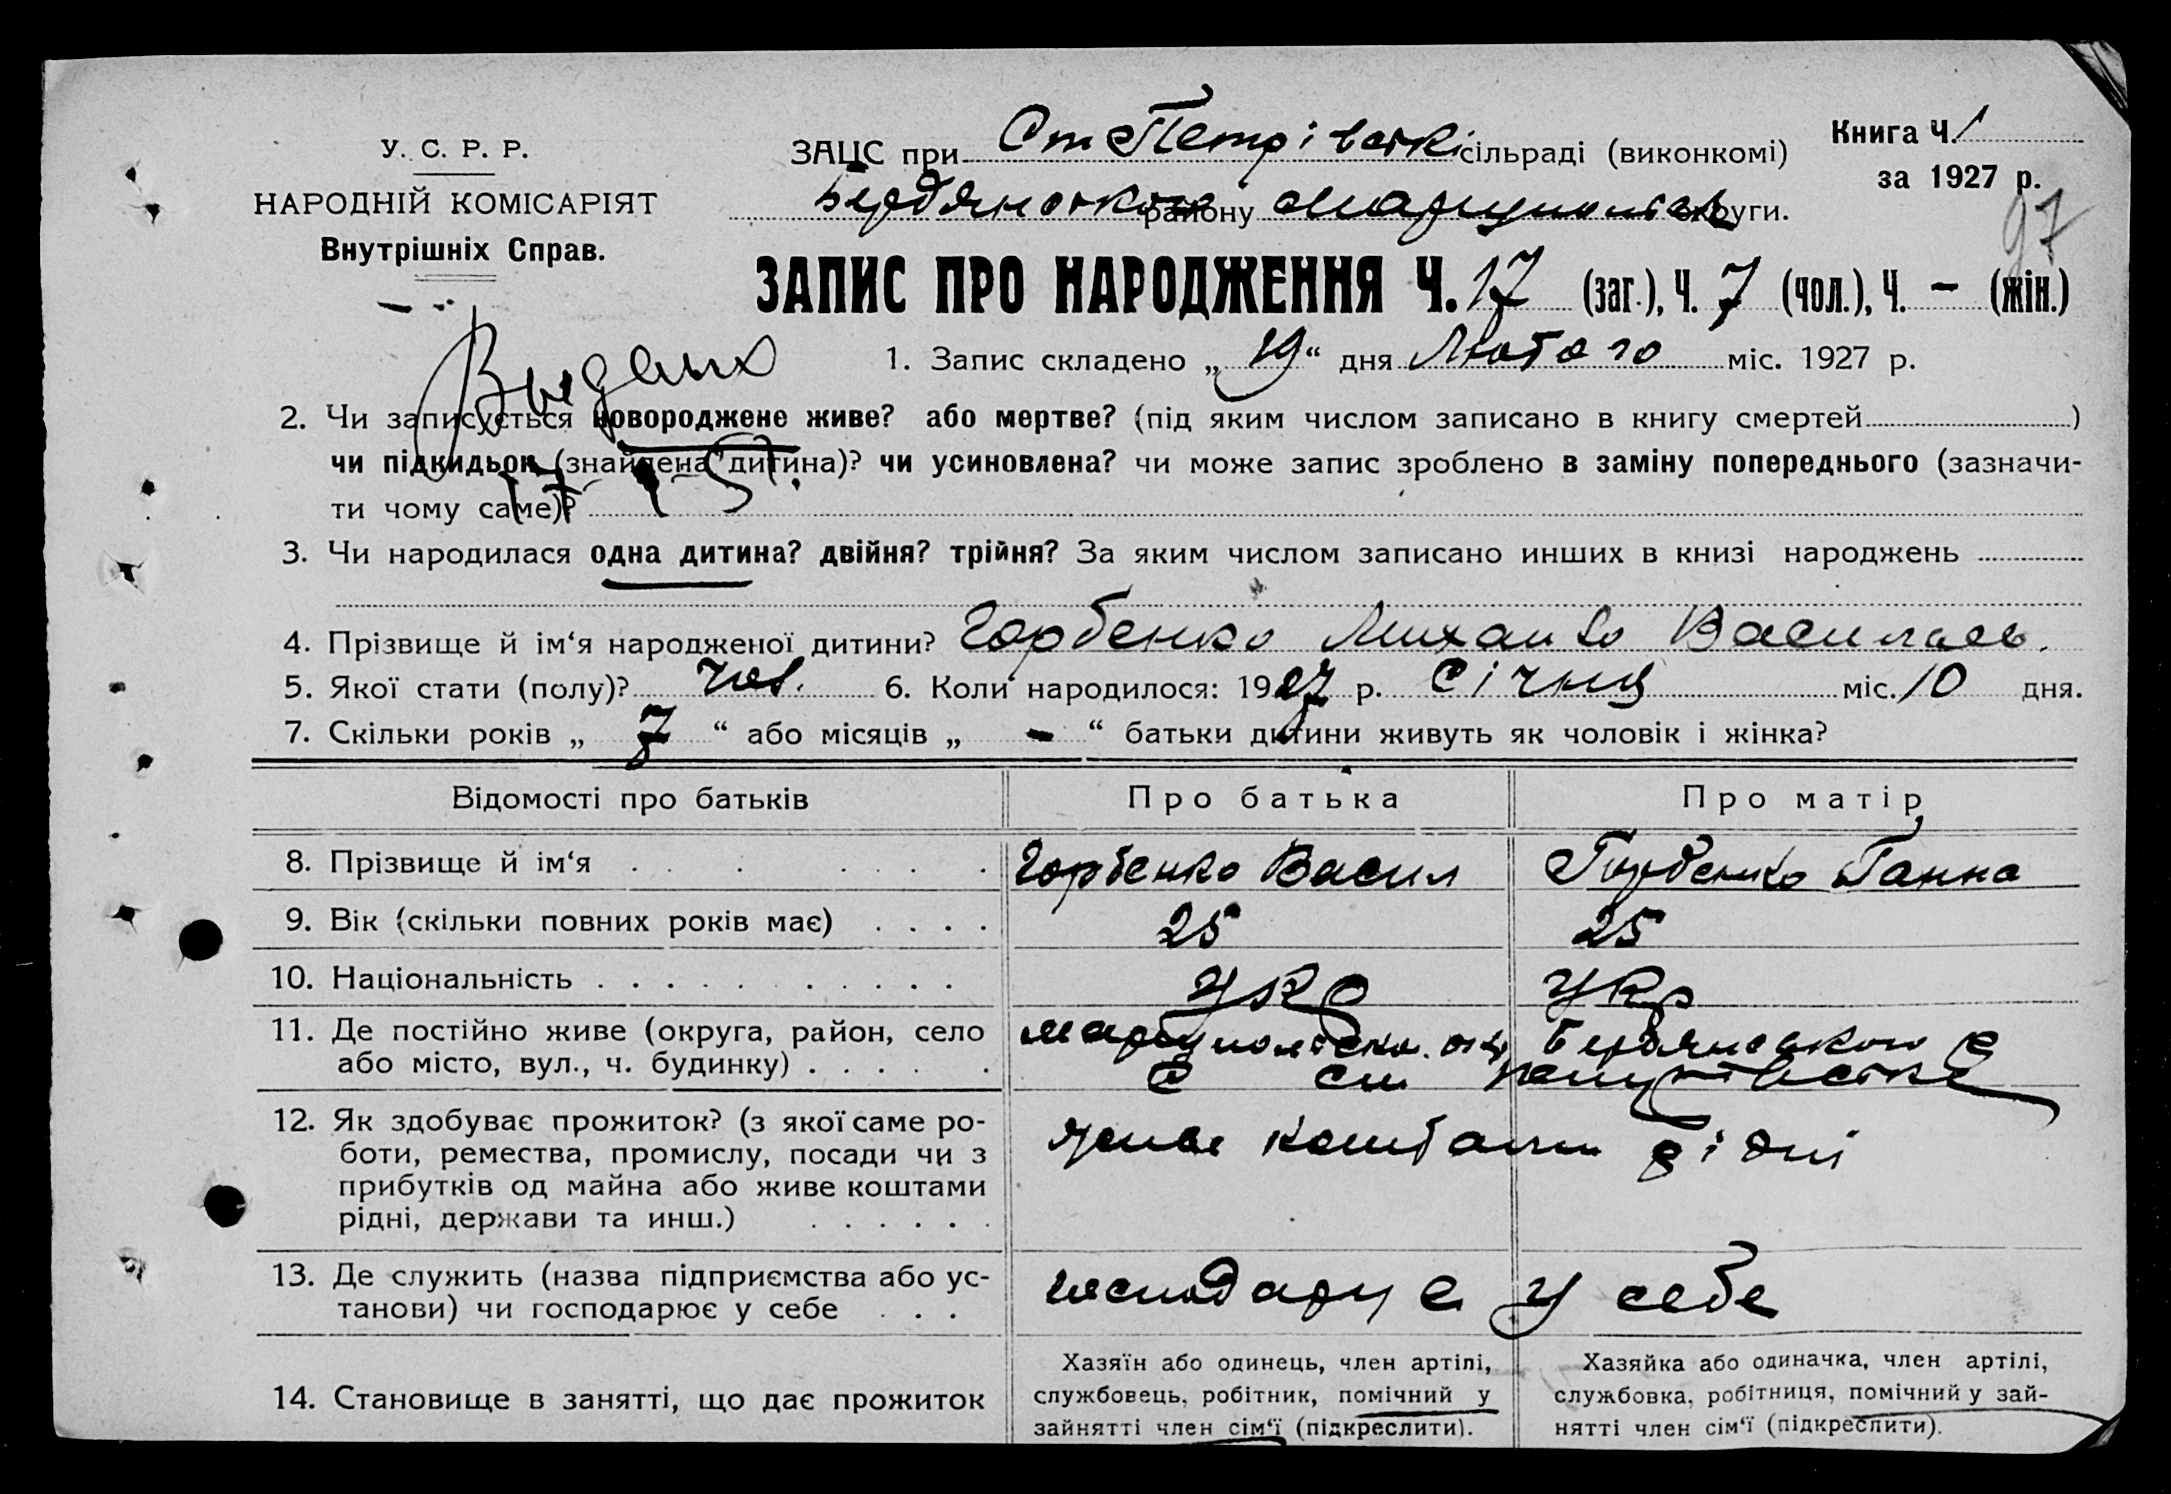 У. С. Р. Р.
НАРОДНІЙ КОМІСАРІЯТ
Внутрішніх Справ.
ЗАЦС при Ст Петрівскі сільраді (виконкомі)
Книга Ч. 1
за 1927 р.
Бердянського району Маріупольск округи.
97
ЗАПИС ПРО НАРОДЖЕННЯ Ч. 17 (заг.), Ч. 7 (чол.), Ч. - (жін.)
1. Запис складено „ 19 “ дня Лютого міс. 1927 р.
2. Чи записується новороджене живе? або мертве? (під яким числом записано в книгу смертей )
чи підкидьок (знайдена дитина)? чи усиновлена? чи може запис зроблено в заміну попереднього (зазначи-
ти чому саме)?
3. Чи народилася одна дитина? двійня? трійня? За яким числом записано инших в книзі народжень
4. Прізвище й ім‘я народженої дитини? Горбенко Михайло Васильев.
5. Якої стати (полу)? чол. 6. Коли народилося: 1927 р. Січня міс. 10 дня.
7. Скільки років „ 7 “ або місяців „ - “ батьки дитини живуть як чоловік і жінка?
Відомості про батьків Про батька Про матір
8. Прізвище й ім‘я Горбенко Васил Горбенко Ганна
9. Вік (скільки повних років має) 25 25
10. Національність укр укр
11. Де постійно живе (округа, район, село Маріупольськ. окр Бердянського
або місто, вул., ч. будинку) С ст Петрівське
12. Як здобуває прожиток? (з якої саме ро-
боти, ремества, промислу, посади чи з живе коштами рідні
прибутків од майна або живе коштами
рідні, держави та инш.)
13. Де служить (назва підприємства або ус-
танови) чи господарює у себе господарує у себе
14. Становище в занятті, що дає прожиток
Хазяїн або одинець, член артілі,
службовець, робітник, помічний у
зайнятті член сім‘ї (підкреслити).
Хазяйка або одиначка, член артілі,
службовка, робітниця, помічний у зай-
нятті член сім‘ї (підкреслити).